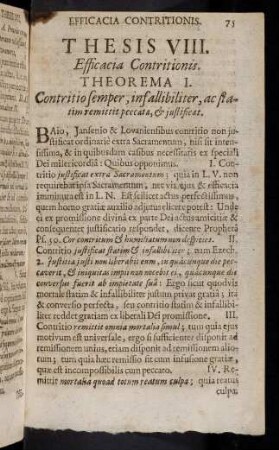 EFFICACIA CONTRITIONIS. 75
THESIS VIII.
Efficacia Contritionis.
THEOREMA I.
Contritio semper, infallibiliter, ac sta-
tim remittit peccata, & justificat.
BAjo, Jansenio & Lovaniensibus contritio non ju-
stificat ordinariè extra Sacramentum, nisi sit inten-
sissima, & in quibusdam casibus necessitatis ex speciali
Dei misericordiâ: Quibus opponimus. I. Con-
tritio justificat extra Sacramentum: quia in L. V. non
requirebatipsa Sacramentum, nec vis & efficacia
imminuta est in L. N. Et scilicet actus perfectissimus,
quem homo gratiâ auxilio adjutus elicere potest: Unde
ei ex promissione divina ex parte Dei
consequenter justificatio respondet, dicente Prophetâ
Ps. 50. Cor contritum & humiliatum non despicies. II.
Contritio justificat statim & infallibiliter; nam Ezech.
2. Justitia justi non liberabit eum, in quâcunque die pec-
caverit, & iniquitas impii non nocebit ei, quâcunque die
conversus fuerit ab impietate suâ: Ergo sicut quodvis
mortale statim & infallibiliter justum privat gratiâ; ita
& conversio perfecta, seu contritio statim & infallibili-
ter reddet gratiam ex liberali Dei promissione. III.
Contritio remittit omnia mortalia simul; tum quia ejus
motivum est universale, ergo si sufficienter disponit ad
remissionem unius, etiam disponit ad remissionem alio-
rum; tum quia hæc remissio fit cum infusione gratiæ,
quæ est incompossibilis cum peccato. IV. Re-
mittit mortalia quoad totum reatum culpæ; quia reatus
culpæ